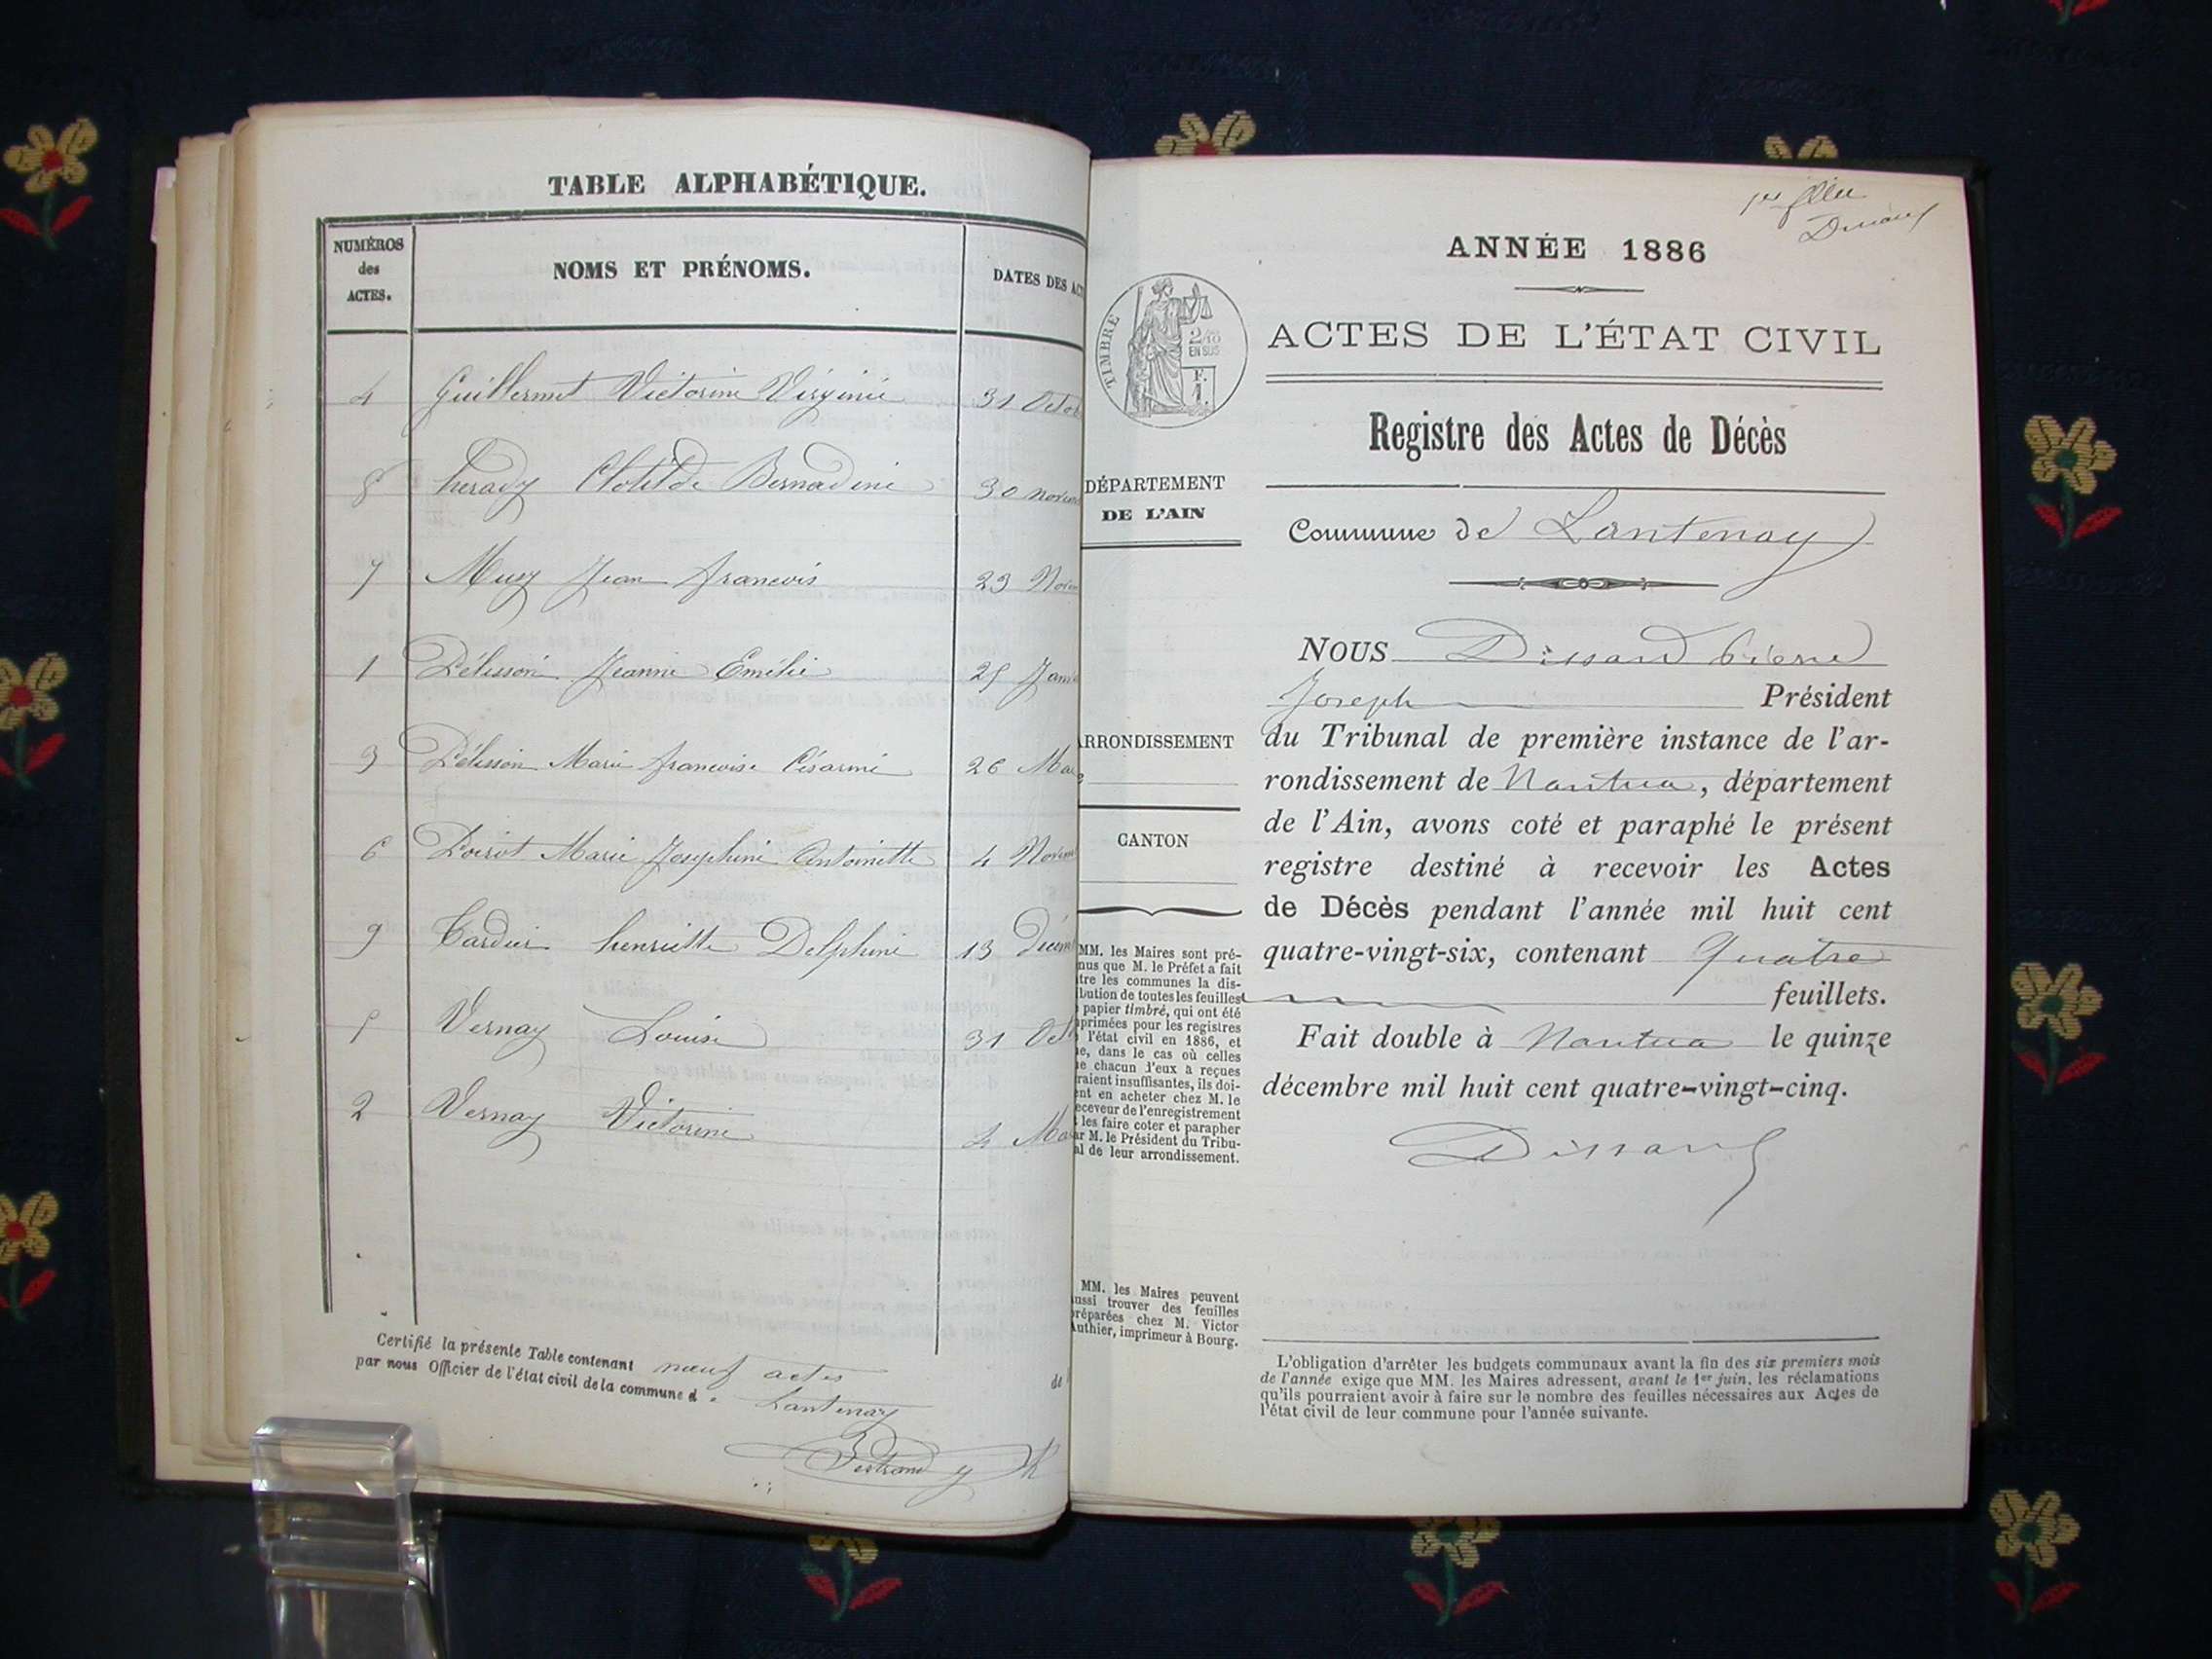 TABLE ALPHABÉTIQUE.
NUMÉROS
des
ACTES.
NOMS ET PRÉNOMS.
DATES DES ACT
4 Guillermet Victorine Virginie 31 Octo
8 herady Clotilde Bernadine 30 novem
7 Muez Jean francois 23 Novem
1 Pélisson Jeanne Emélie 25 Janvi
3 Pélisson Marie francoise Césarine 26 Mar
6 Poirot Marie Josephine Antoinette 4 Novem
9 Tardui henriette Delphine 13 Décem
5 Vernay Louise 31 Oct
2 Vernay Victorine 4 Ma
Certifié la présente Table contenant neuf actes
par nous Officier de l'état civil de la commune de Lantenay
Bertrand
1er
ANNÉE 1886
TIMBRE
2/10
EN SUS
F.
1.
ACTES DE L'ÉTAT CIVIL
Registre des Actes de Décès
DÉPARTEMENT
DE L'AIN
Commune de Lantenay
NOUS Dissard Pierre
Joseph Président
du Tribunal de première instance de l'ar-
rondissement de Nantua, département
de l'Ain, avons coté et paraphé le présent
registre destiné à recevoir les Actes
de Décès pendant l'année mil huit cent
quatre-vingt-six, contenant Quatre
feuillets.
Fait double à Nantua le quinze
décembre mil huit cent quatre-vingt-cinq.
Dissard
RRONDISSEMENT
CANTON
MM. les Maires sont pré-
nus que M. le Préfet a fait
tre les communes la dis-
bution de toutes les feuilles
papier timbré, qui ont été
primées pour les registres
l'état civil en 1886, et
e, dans le cas où celles
e chacun d'eux a reçues
raient insuffisantes, ils doi-
ent en acheter chez M. le
eceveur de l'enregistrement
les faire coter et parapher
ar M. le Président du Tribu-
al de leur arrondissement.
MM. les Maires peuvent
ussi trouver des feuilles
préparées chez M. Victor
Authier, imprimeur à Bourg.
L'obligation d'arrêter les budgets communaux avant la fin des six premiers mois
de l'année exige que MM. les Maires adressent, avant le 1er juin, les réclamations
qu'ils pourraient avoir à faire sur le nombre des feuilles nécessaires aux Actes de
l'état civil de leur commune pour l'année suivante.